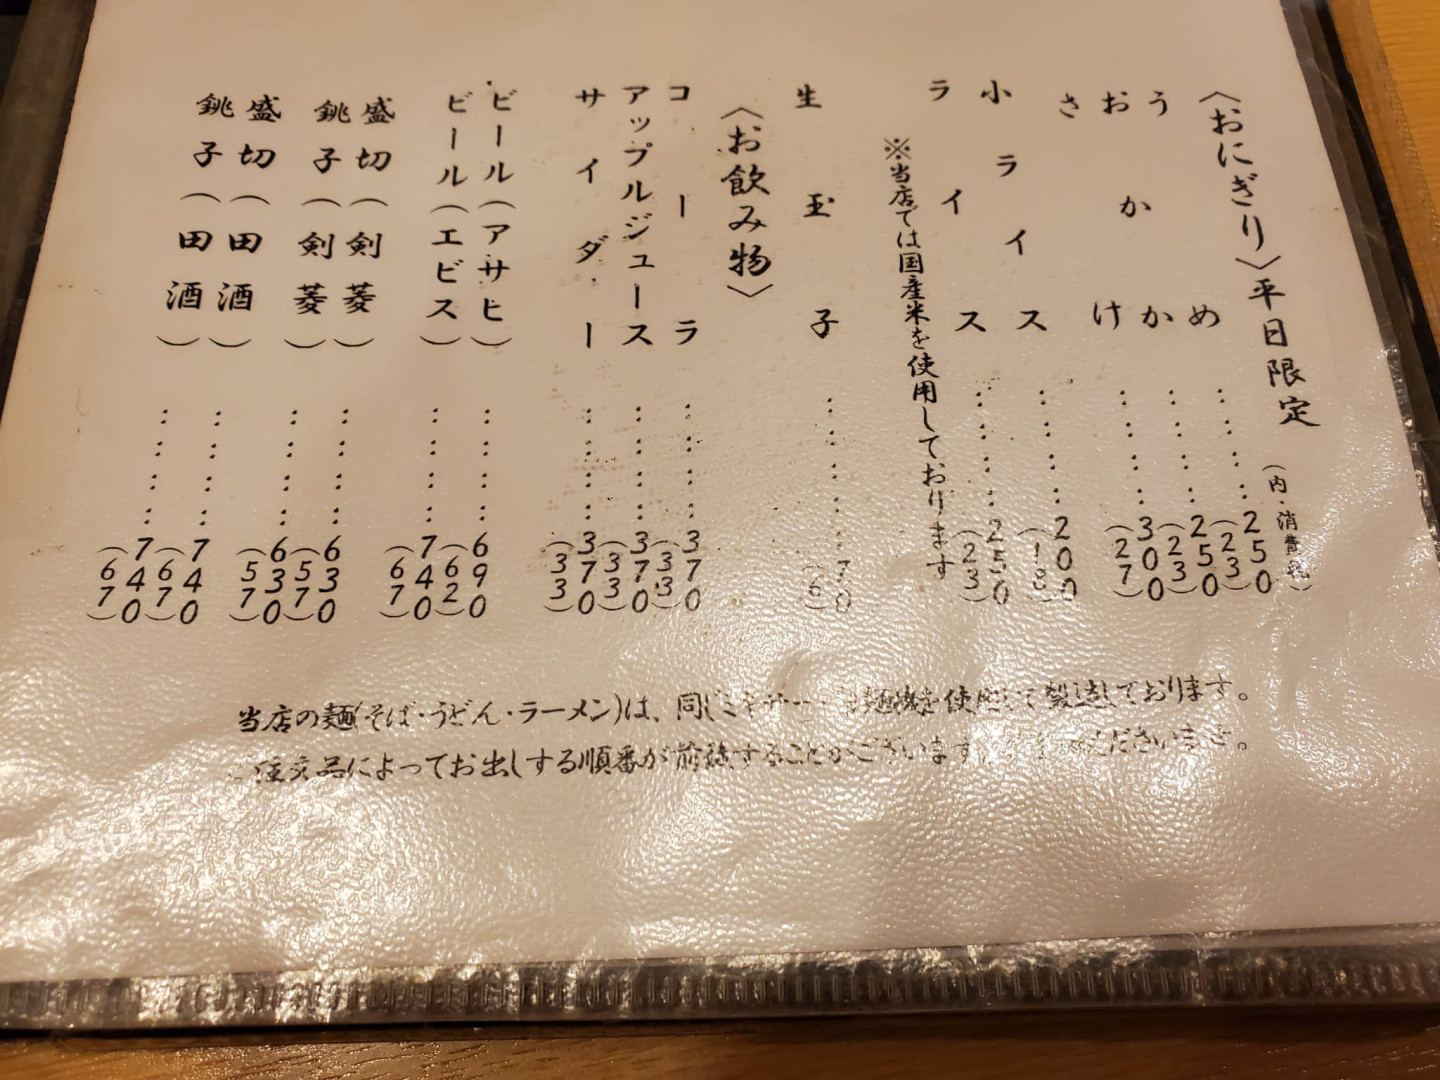 〈おにぎり〉平日限定 (内・消費税)
うめ……250(23)
おかか……250(23)
さけ……300(27)
小ライス……200(18)
ライス……250(23)
※当店では国産米を使用しております
生玉子……70(6)
〈お飲み物〉
コーラ……370(33)
アップルジュース……370(33)
サイダー……370(33)
ビール(アサヒ)……690(62)
ビール(エビス)……740(67)
盛切(剣菱)……630(57)
銚子(剣菱)……630(57)
盛切(田酒)……740(67)
銚子(田酒)……740(67)
当店の麺(そば・うどん・ラーメン)は、同じミキサー・製麺機を使用して製造しております。
ご注文品によってお出しする順番が前後することがございます くださいませ。